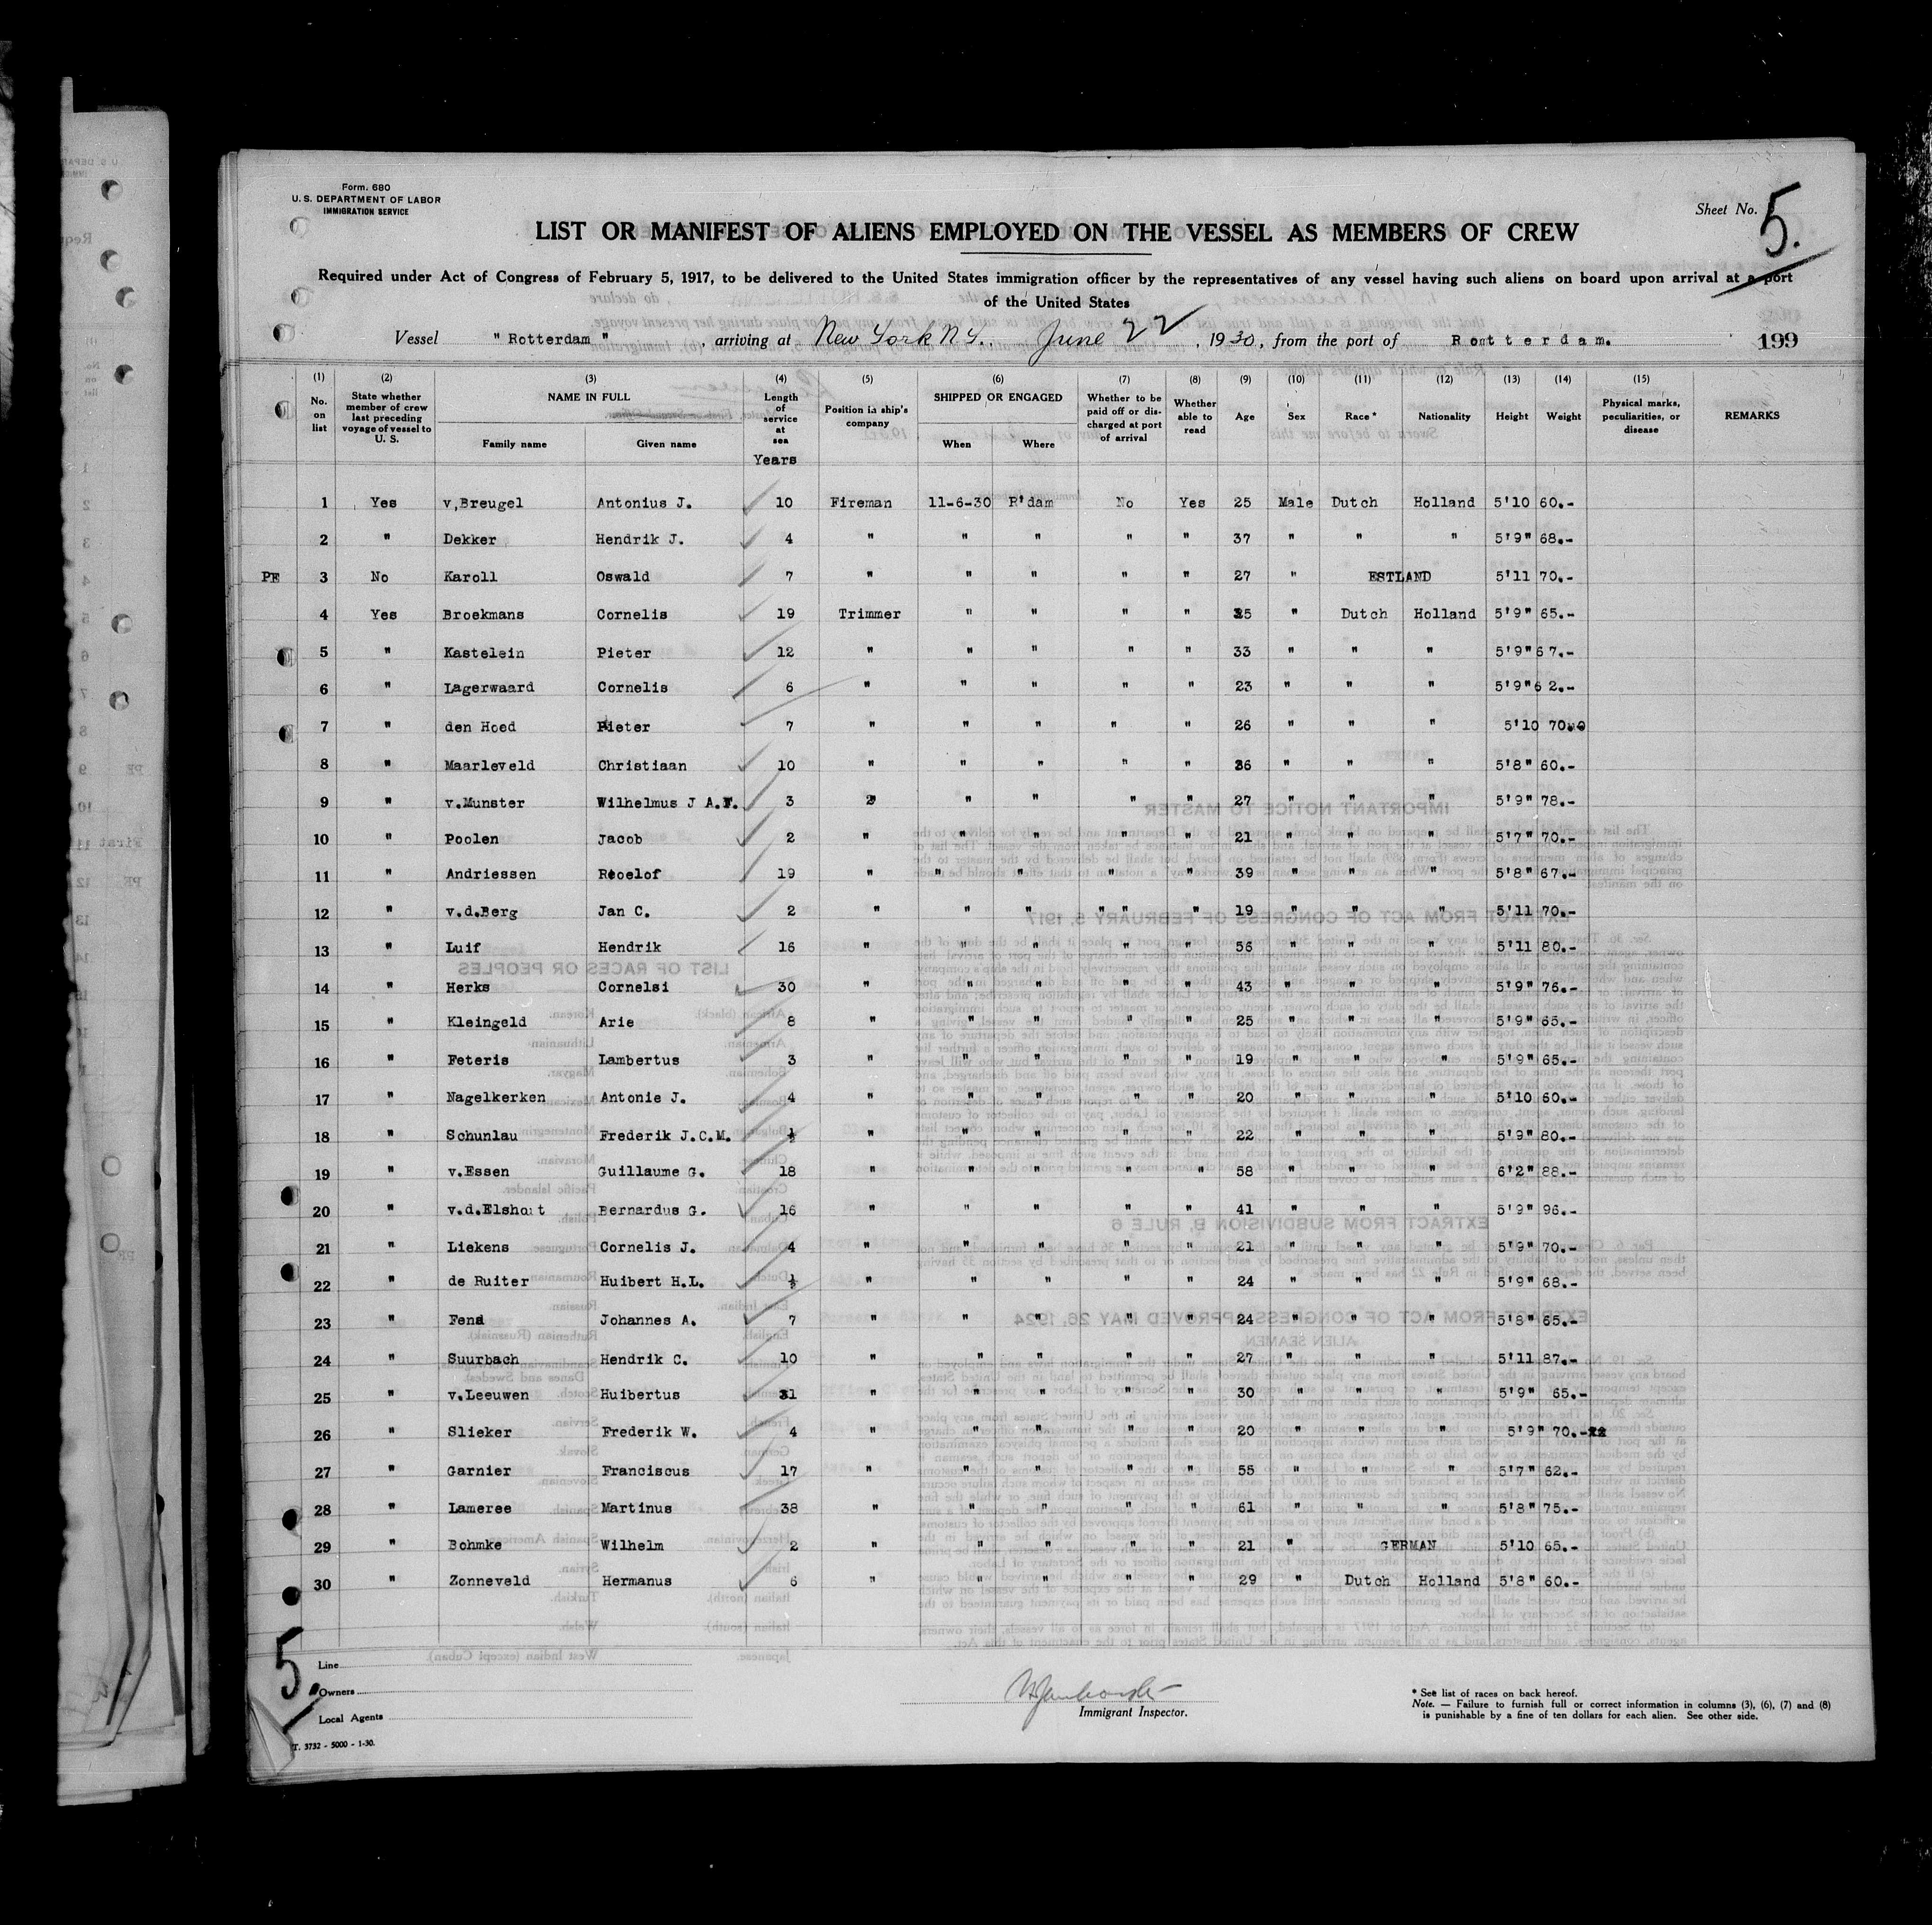 Form. 680
U. S. DEPARTMENT OF LABOR
IMMIGRATION SERVICE
Sheet No. 5.
LIST OR MANIFEST OF ALIENS EMPLOYED ON THE VESSEL AS MEMBERS OF CREW
Required under Act of Congress of February 5, 1917, to be delivered to the United States immigration officer by the representatives of any vessel having such aliens on board upon arrival at a port
of the United States
Vessel " Rotterdam " , arriving at New York N.Y. June 22 , 1930, from the port of Rotterdam. 199
(1) No. on list (2) State whether member of crew last preceding voyage of vessel to U. S. (3) NAME IN FULL Family name Given name (4) Length of service at sea Years (5) Position in ship's company (6) SHIPPED OR ENGAGED When Where (7) Whether to be paid off or discharged at port of arrival (8) Whether able to read (9) Age (10) Sex (11) Race * (12) Nationality (13) Height (14) Weight (15) Physical marks, peculiarities, or disease REMARKS
1 Yes v,Breugel Antonius J. 10 Fireman 11-6-30 R'dam No Yes 25 Male Dutch Holland 5'10 60.-
2 " Dekker Hendrik J. 4 " " " " " 37 " " " 5'9" 68.-
PE 3 No Karoll Oswald 7 " " " " " 27 " ESTLAND 5'11 70.-
4 Yes Broekmans Cornelis 19 Trimmer " " " " 35 " Dutch Holland 5'9" 65.-
5 " Kastelein Pieter 12 " " " " " 33 " " " 5'9" 67.-
6 " Lagerwaard Cornelis 6 " " " " " 23 " " " 5'9" 62.-
7 " den Hoed Pieter 7 " " " " " 26 " " " 5'10 70
8 " Maarleveld Christiaan 10 " " " " " 36 " " " 5'8" 60.-
9 " v.Munster Wilhelmus J A.F. 3 " " " " " 27 " " " 5'9" 78.-
10 " Poolen Jacob 2 " " " " " 21 " " " 5'7" 70.-
11 " Andriessen Roelof 19 " " " " " 39 " " " 5'8" 67.-
12 " v.d.Berg Jan C. 2 " " " " " " 19 " " " 5'11 70.-
13 " Luif Hendrik 16 " " " " " 56 " " " 5'11 80.-
14 " Herks Cornelsi 30 " " " " " 43 " " " 5'9" 76.-
15 " Kleingeld Arie 8 " " " " " 25 " " " 5'9" 65.-
16 " Feteris Lambertus 3 " " " " " 19 " " " 5'9" 65.-
17 " Nagelkerken Antonie J. 4 " " " " " 20 " " " 5'10 60.-
18 " Schunlau Frederik J.C.M. ½ " " " " " 22 " " " 5'9" 80.-
19 " v.Essen Guillaume G. 18 " " " " " 58 " " " 6'2" 88.-
20 " v.d.Elshout Bernardus G. 16 " " " " " 41 " " " 5'9" 96.-
21 " Liekens Cornelis J. 4 " " " " " 21 " " " 5'9" 70.-
22 " de Ruiter Huibert H.L. ½ " " " " " 24 " " " 5'9" 68.-
23 " Johannes A. 7 " " " " " 24 " " " 5'8" 65.-
24 " Suurbach Hendrik C. 10 " " " " " 27 " " " 5'11 87.-
25 " v.Leeuwen Huibertus " " " " " 30 " " " 5'9" 65.-
26 " Slieker Frederik W. 4 " " " " " 20 " " " 5'9" 70.-
27 " Garnier Franciscus 17 " " " " " 55 " " " 5'7" 62.-
28 " Lameree Martinus 38 " " " " " 61 " " " 5'8" 75.-
29 " Bohmke Wilhelm 2 " " " " " 21 " GERMAN 5'10 65.-
30 " Zonneveld Hermanus 6 " " " " " 29 " Dutch Holland 5'8" 60.-
5.
Line
Owners
Local Agents
T. 3732 - 5000 - 1-30.
Immigrant Inspector.
* See list of races on back hereof.
Note. — Failure to furnish full or correct information in columns (3), (6), (7) and (8)
is punishable by a fine of ten dollars for each alien. See other side.